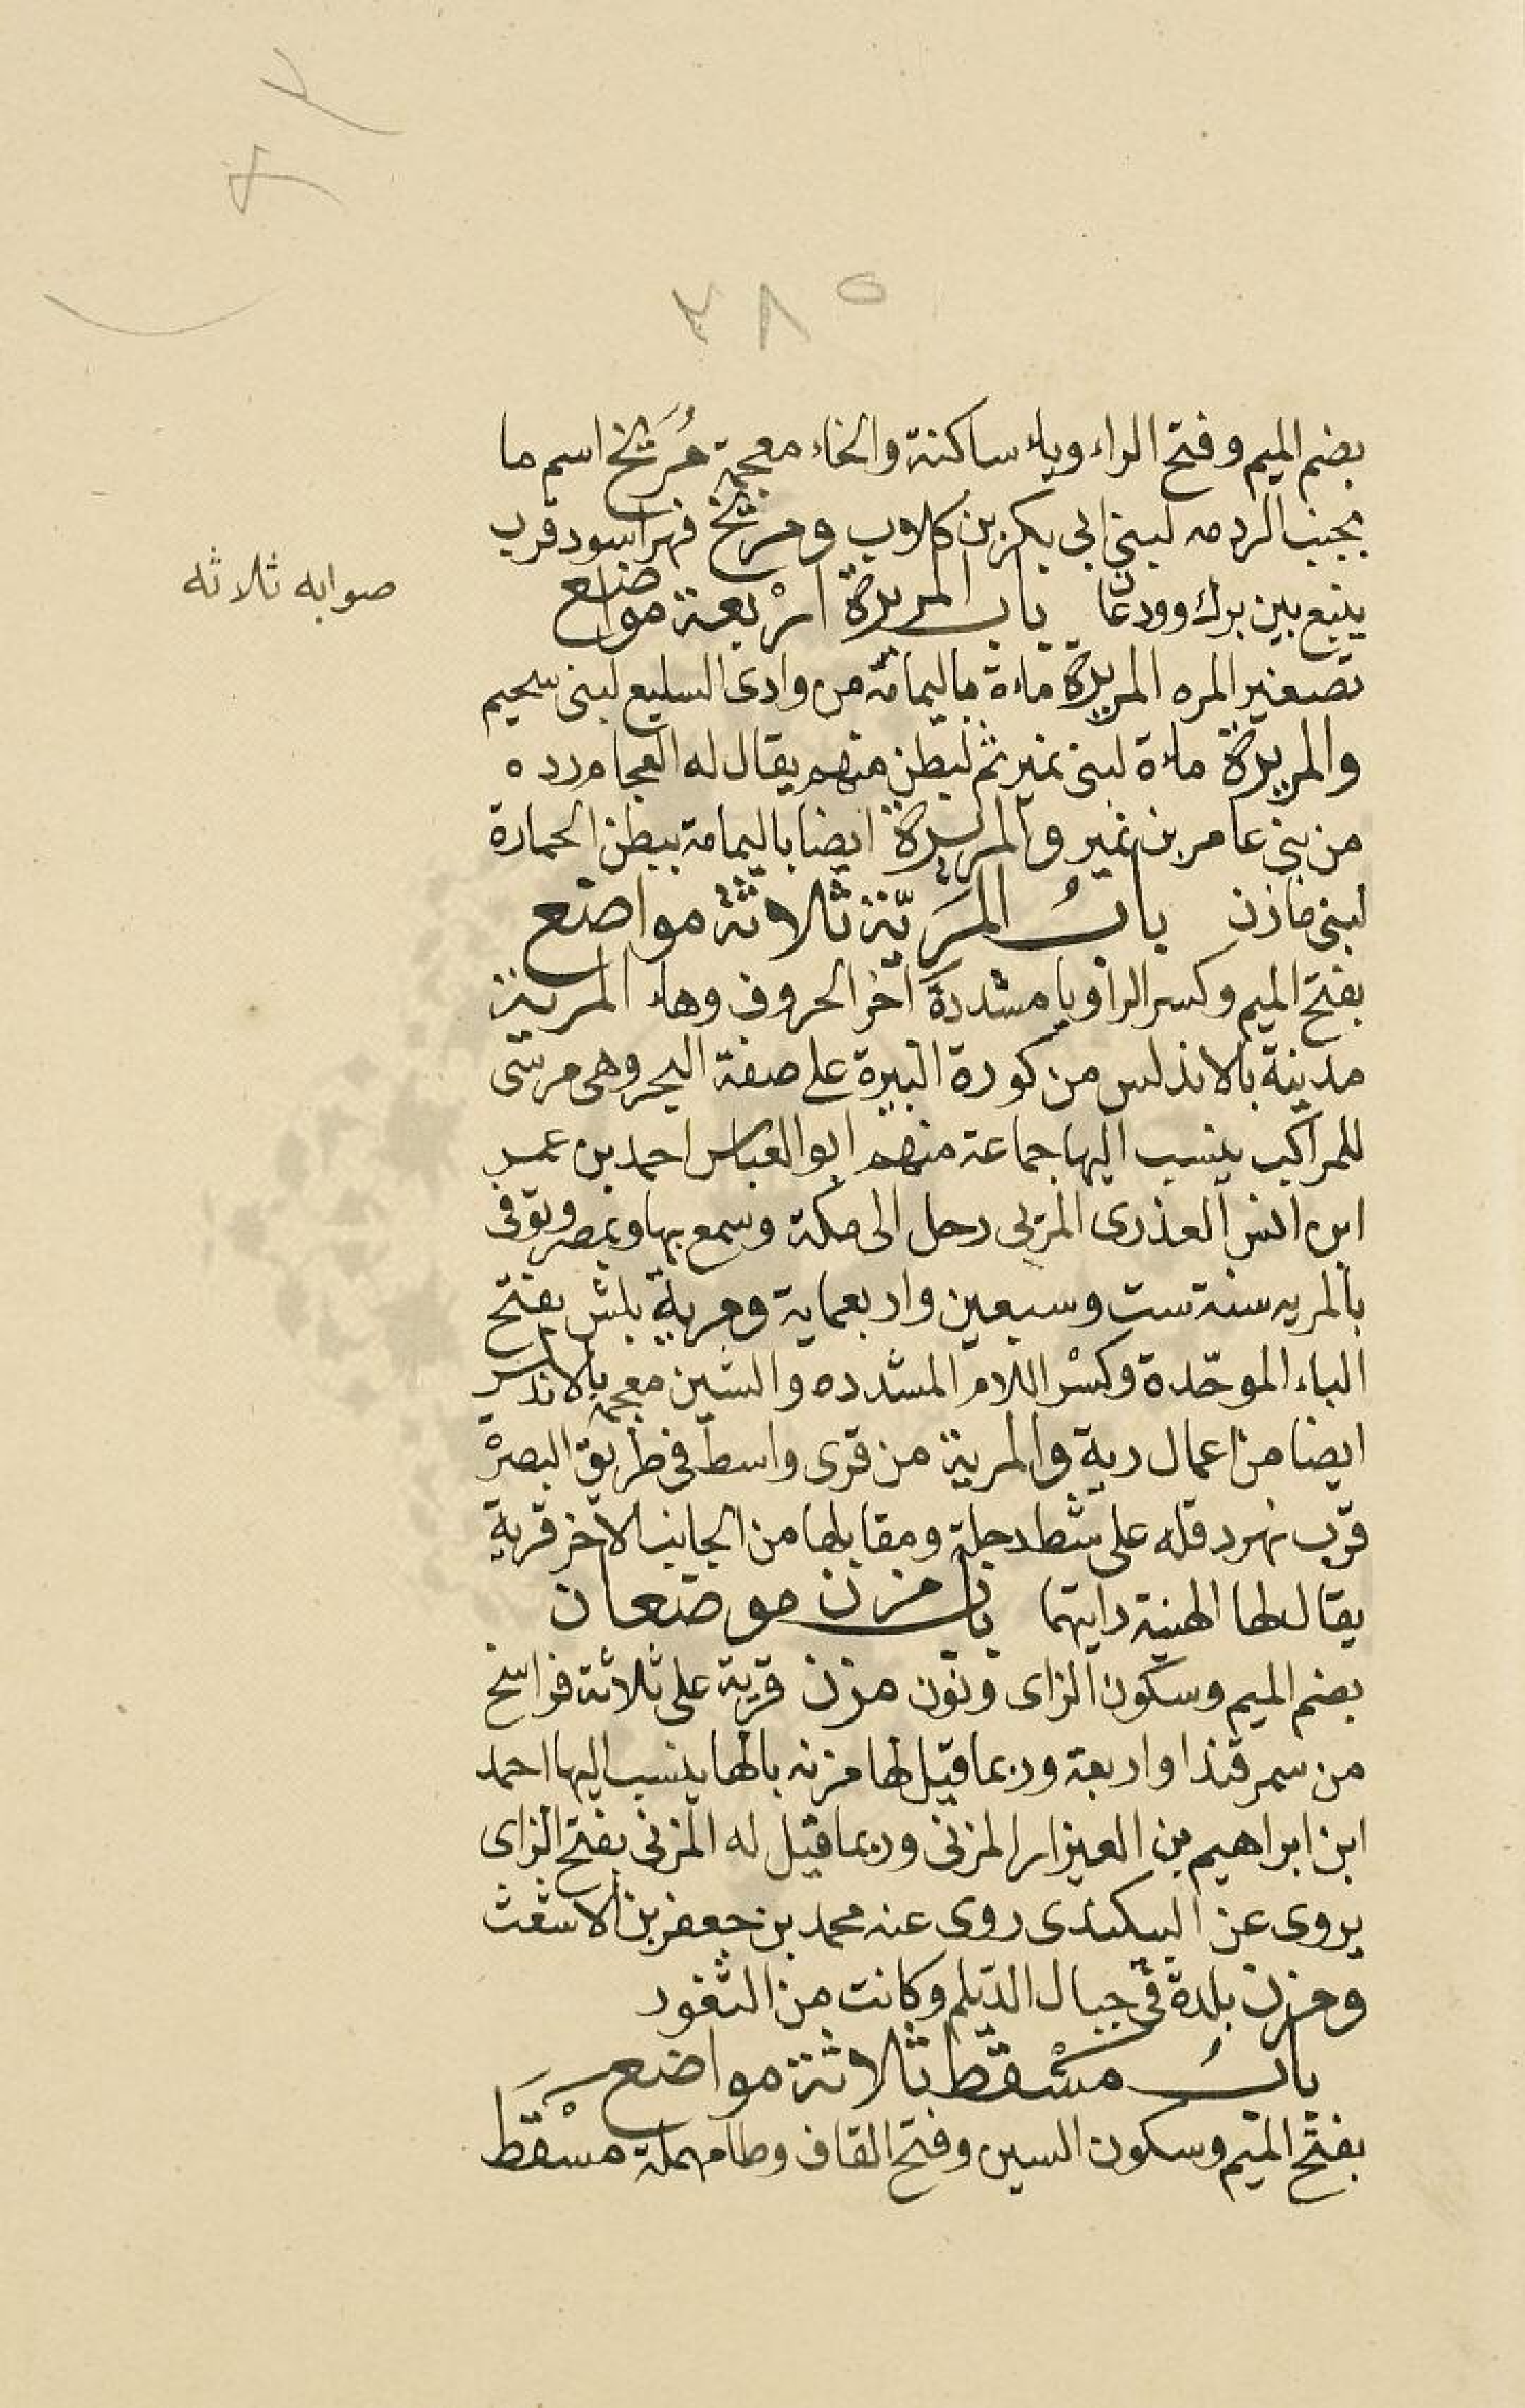 ٣٨٥
بضم الميم وفتح الراء وياء ساكنة والخاء معجمة مُرَيْخ اسم ما
بجنب الردمه لبني ابي بكر بن كلاب ومريخ قهر اسود قرب
ينبع بين برك وودعان باب المريرة ارْبعة مواضع
صوابه ثلاثه
تصغير المره المريرة ماءة باليمامة من وادى السليع لبنى سحيم
والمريرة ماءة لبنى نمير ثم لبطن منهم يقال له العجامورده
من بنى عامر بن نمير والمريرة ايضا باليمامة ببطن الحمادة
لبنى مازن بابُ المَرِيّة ثلاثة مواضع
بفتح الميم وكسر الرا ويا مشددة اخر الحروف وهاء المرية
مدينة بالاندلس من كورة البيرة على ضفة البحر وهى مرسى
للمراكب ينسب اليها جماعة منهم ابو العباس احمد بن عمر
ابن انس العذرى المربى رحل الى مكة وسمع بها وبمصر وتوفى
بالمريه سنة ست وسبعين واربعماية ومرية بلش بفتح
الباء الموحّدة وكسْر اللام المشدده والشين معجمة بالاندلس
ايضا من اعمال رية والمرية من قرى واسط فى طريق البصرة
قرب نهر دقله على شط دجلة ومقابلها من الجانب الاخر قرية
يقال لها الهنية رايتهما باب مزن موضعان
بضم الميم وسكون الزاى ونون مزن قرية على ثلاثة فراسخ
من سمرقند او اربعة وربما قيل لها مزنه بالها ينسب اليها احمد
ابن ابراهيم بن العيزار المزنى وربما قيل له المزنى بفتح الزاى
يروى عن البيكندى روى عنه محمد بن جعفر بن الاشعث
ومزن بلدة فى جبال الديلم وكانت من الثغور
بابُ مسْقط ثلاثة مواضع
بفتح الميم وسكون السين وفتح القاف وطا مهملة مَسْقَط